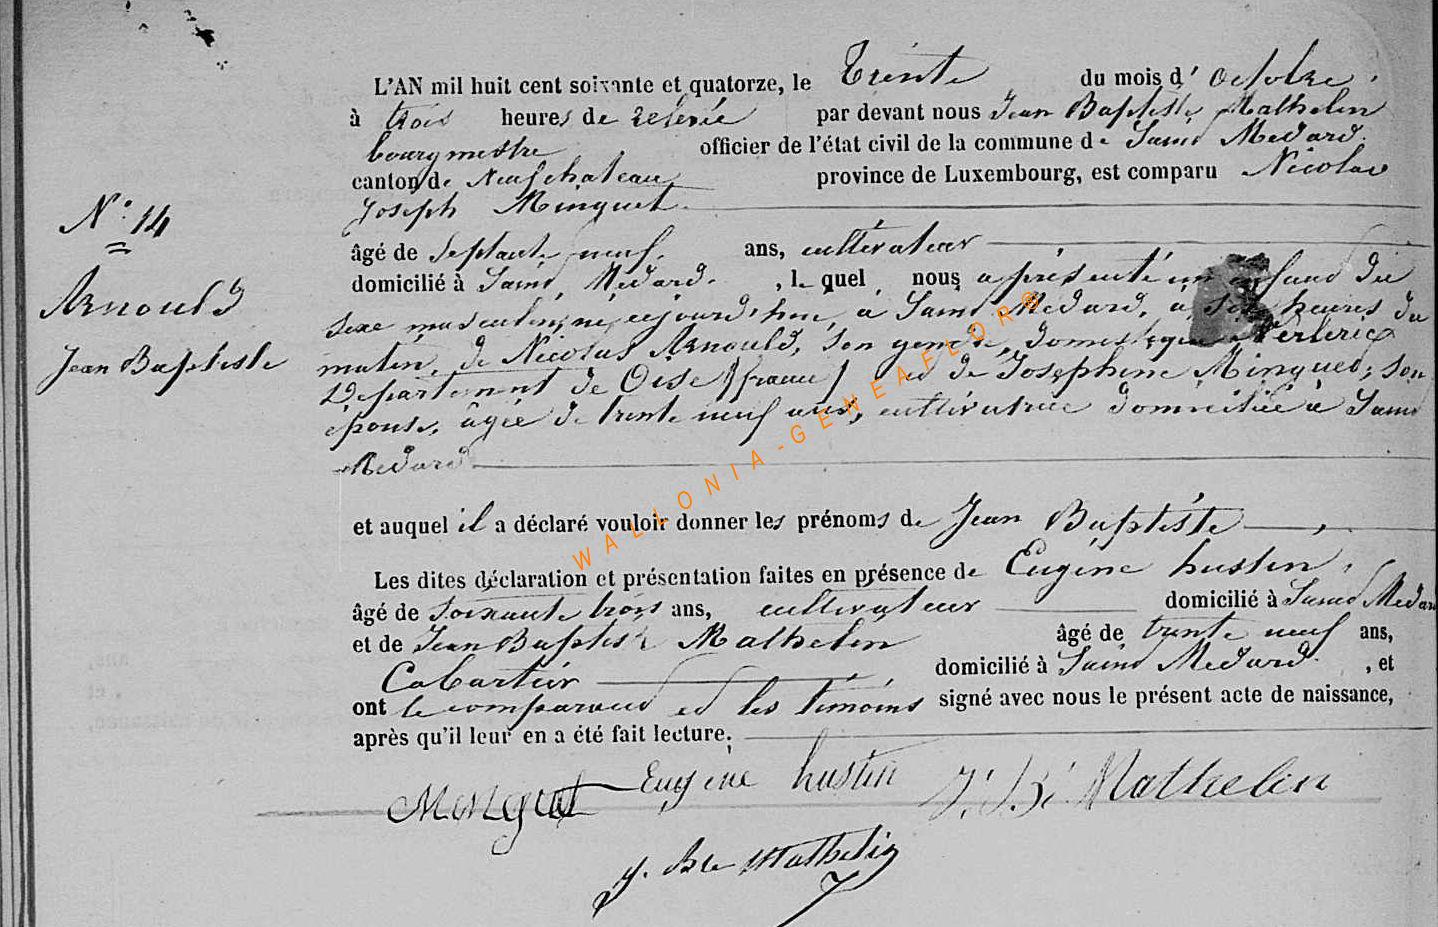 L'AN mil huit cent soixante et quatorze, le Trente du mois d' Octobre,
à trois heures de relevée par devant nous Jean Baptiste Mathelin
bourgmestre officier de l'état civil de la commune de Saint Médard.
canton de Neufchateau province de Luxembourg, est comparu Nicolas
Joseph Minguet.
N° 14
âgé de septante neuf. ans, cultivateur
domicilié à Saint Médard. , lequel nous a présenté un enfant du
Arnould
sexe masculin, né, aujourd'hui, à Saint Médard, à heures du
matin, de Nicolas Arnould, son gendre, domestique
Jean Baptiste
Département de Oise (france) et de Joséphine Minguet, son
épouse, âgée de trente neuf ans, cultivatrice domiciliée à Saint
Médard
et auquel il a déclaré vouloir donner les prénoms de Jean Baptiste,
Les dites déclaration et présentation faites en présence de Eugène hustin,
âgé de soixante trois ans, cultivateur domicilié à Saint Médard
et de Jean Baptiste Mathelin âgé de trente neuf ans,
Cabartier domicilié à Saint Médard. , et
ont le comparant et les témoins signé avec nous le présent acte de naissance,
après qu'il leur en a été fait lecture.
Minguet Eugène hustin J. B. Mathelin
J. Bte Mathelin
WALLONIA-GENEAFLOR®